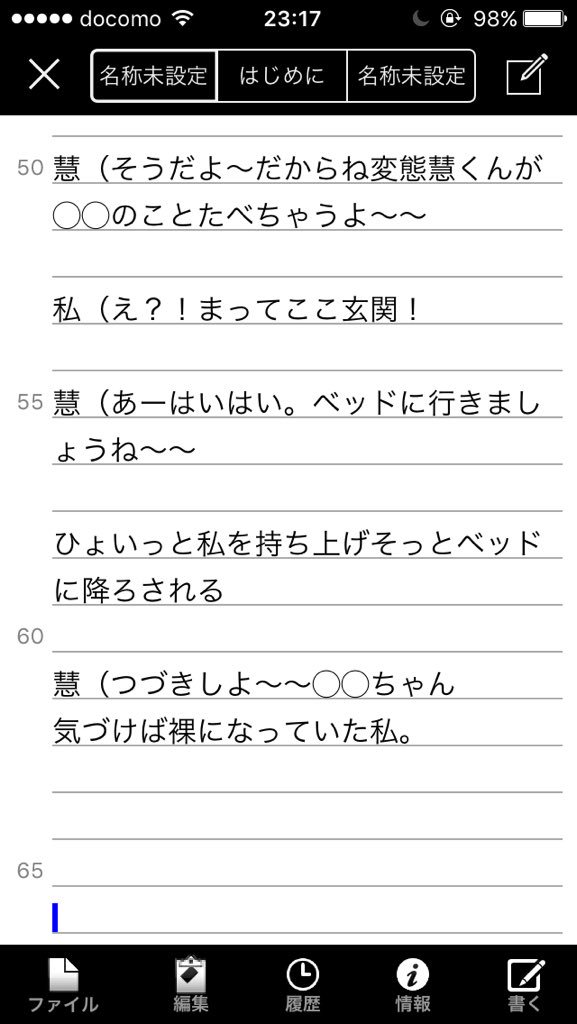 docomo 23:17 98%
名称未設定 はじめに 名称未設定
50 慧（そうだよ〜だからね変態慧くんが
◯◯のことたべちゃうよ〜〜
私（え？！まってここ玄関！
55 慧（あーはいはい。ベッドに行きまし
ょうね〜〜
ひょいっと私を持ち上げそっとベッド
に降ろされる
60
慧（つづきしよ〜〜◯◯ちゃん
気づけば裸になっていた私。
65
ファイル 編集 履歴 情報 書く